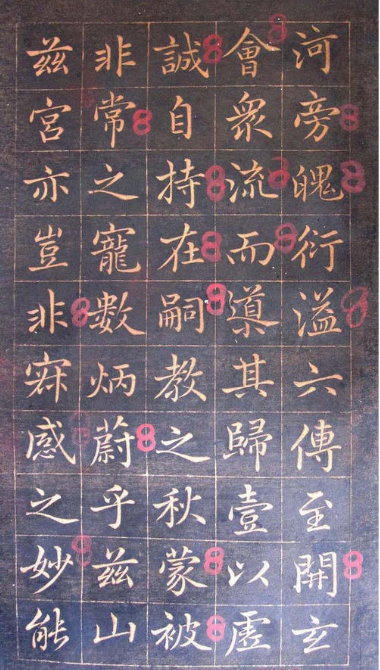 河旁魄衍溢六傳至開玄
會衆流而導其歸壹以虛
誠自持在嗣教之秋蒙被
非常之寵數炳蔚乎兹山
兹宮亦豈非寐感之妙能